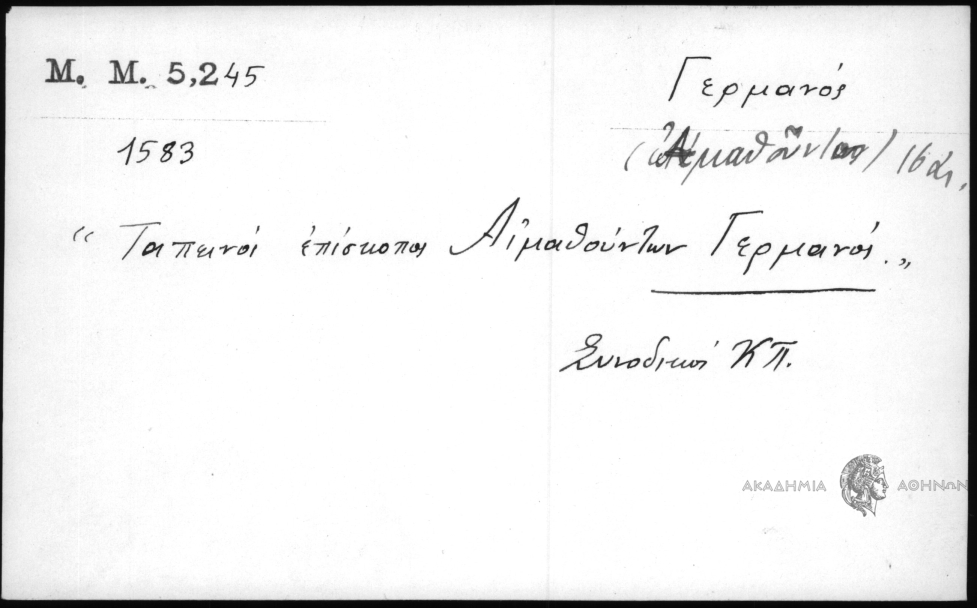 M. M. 5,245
Γερμανός
1583
16 αι.
“ Ταπεινός ἐπίσκοπος Αἱμαθούντων Γερμανός. „
Συνοδικοί ΚΠ.
ΑΚΑΔΗΜΙΑ ΑΘΗΝΩΝ